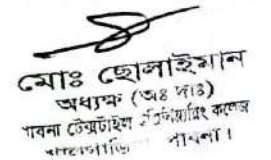 মোঃ ছোলাইমান
অধ্যক্ষ (অঃ দাঃ)
পাবনা টেক্সটাইল ইঞ্জিনিয়ারিং কলেজ
পাবনা।